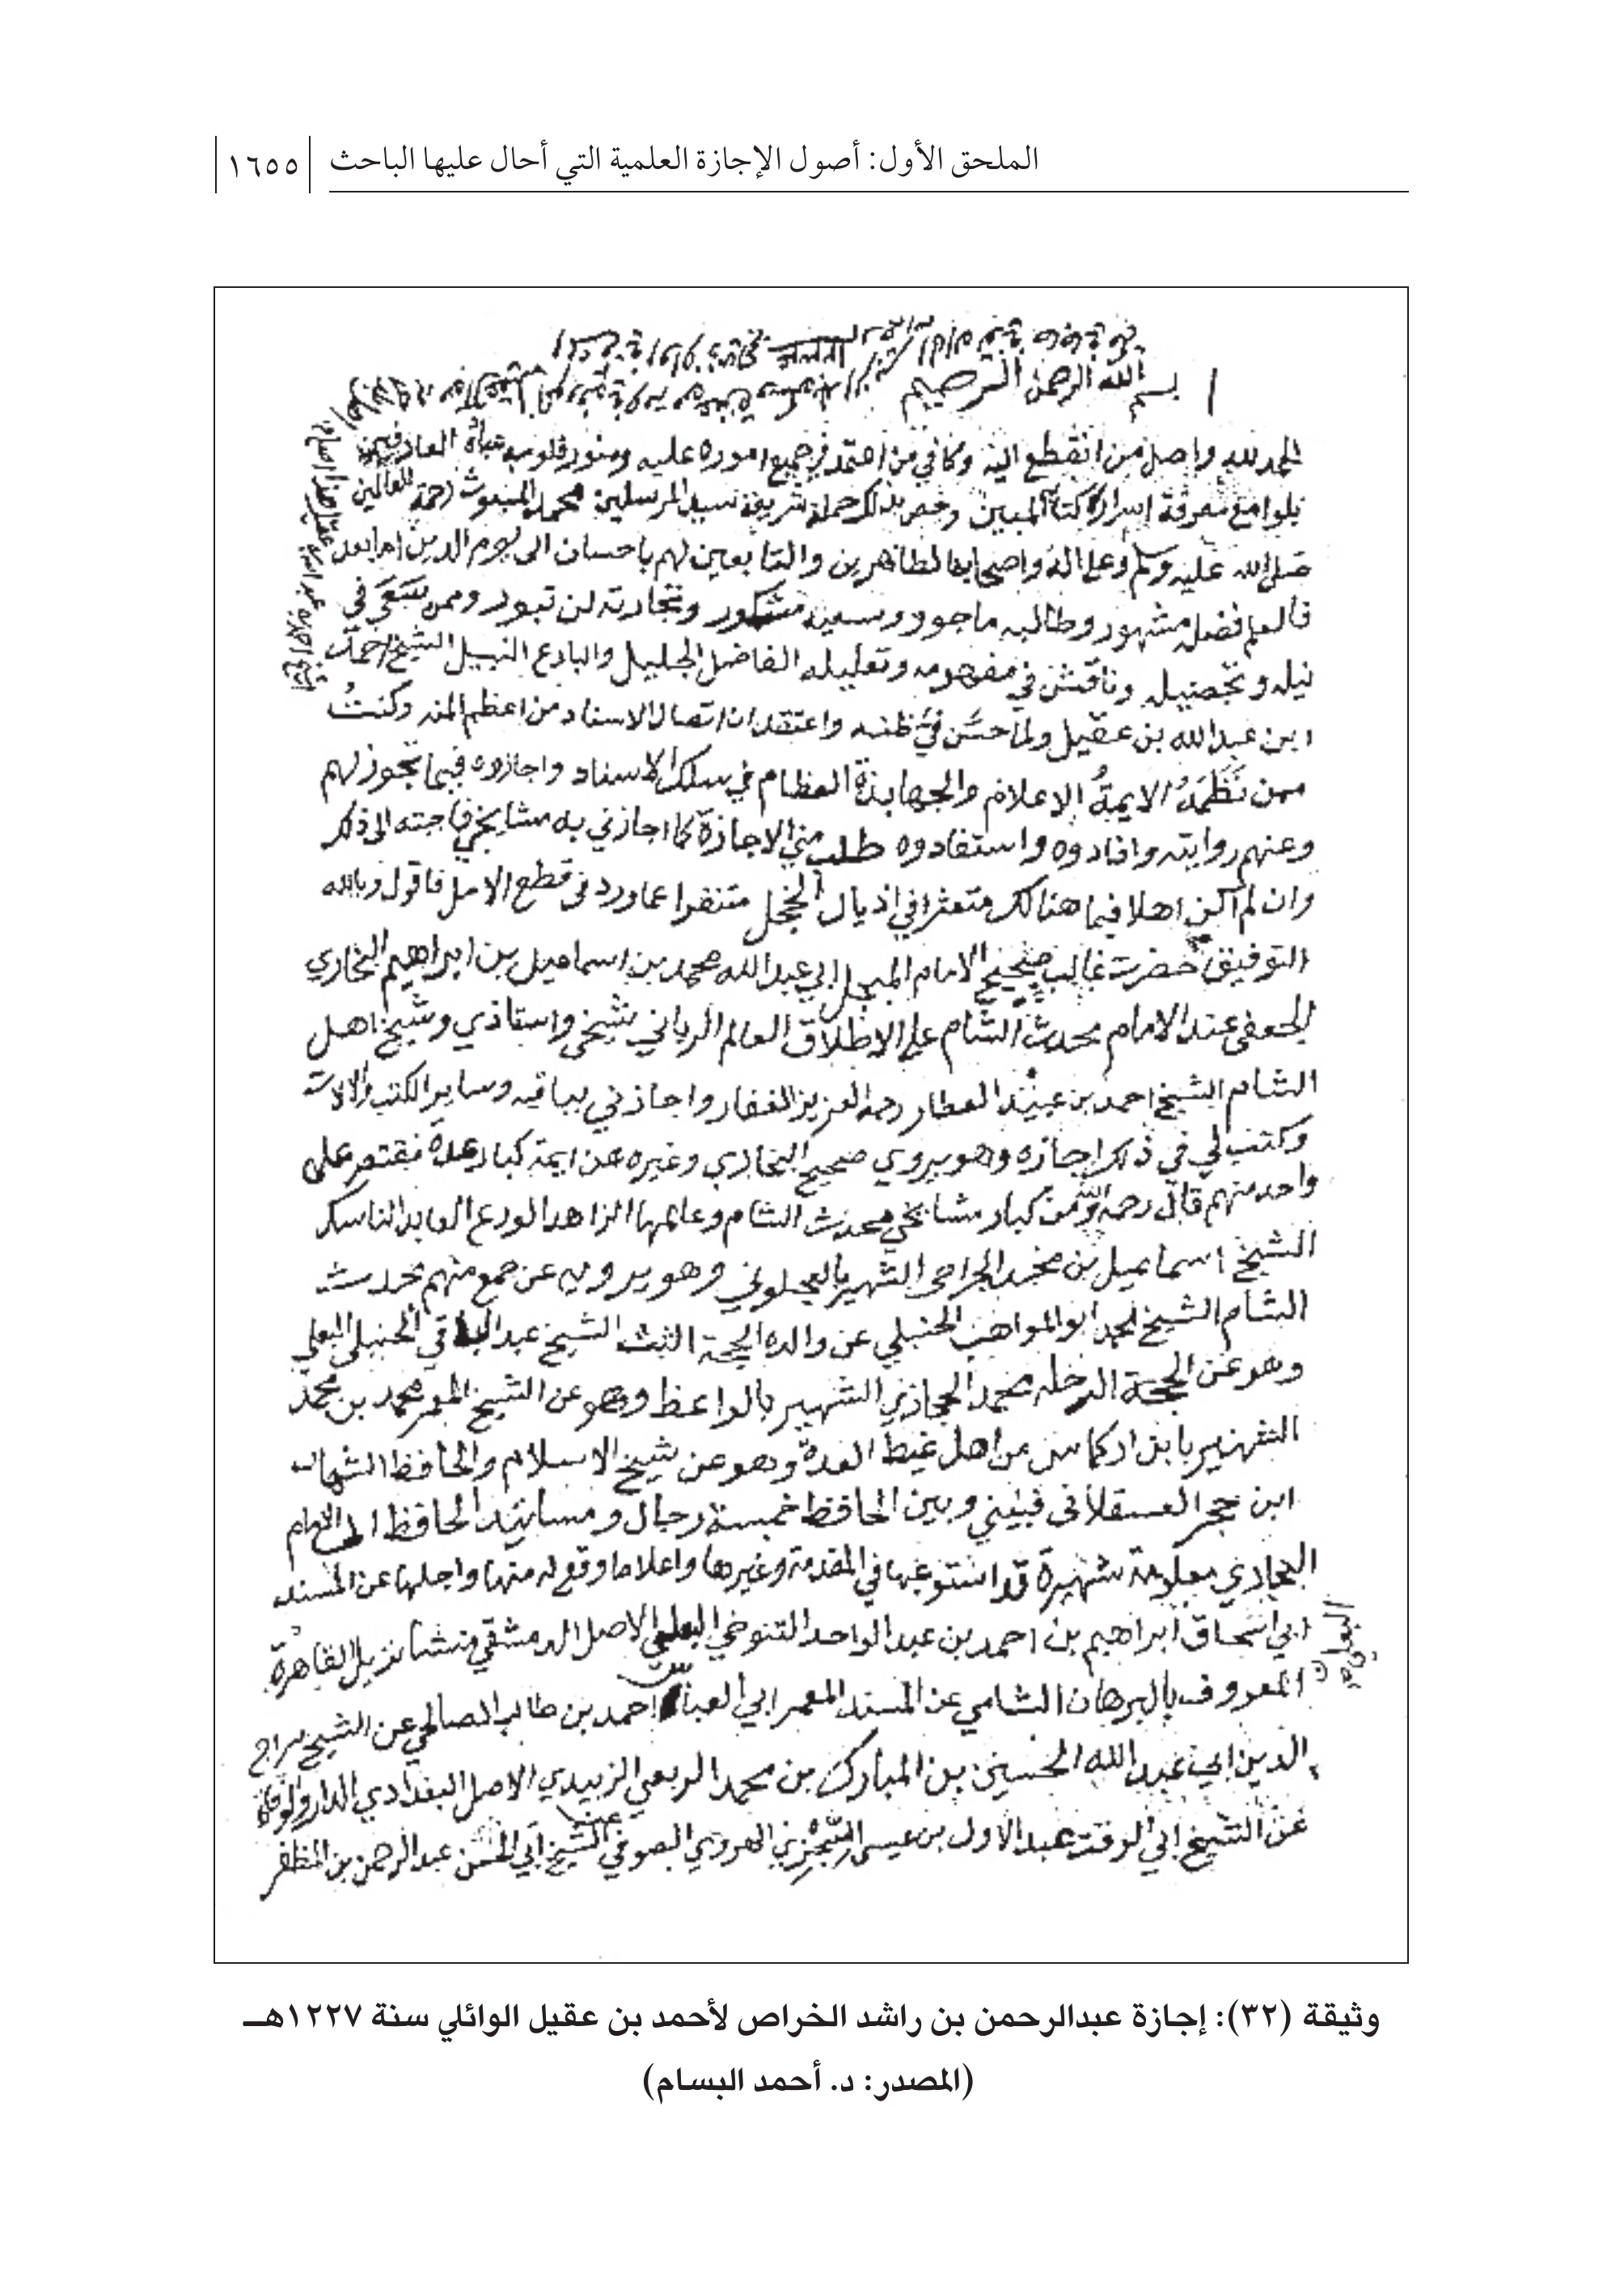 الملحق الأول: أصول الإجازة العلمية التي أحال عليها الباحث
١٦٥٥
بسم الله الرحمن الرحيم
الحمد لله واصل من انقطع اليه وكافي من اعتمد في جميع اموره عليه ومنور قلوب العارفين
بلوامع معرفة اسرار كتابه المبين وخص بذلك حملة شريعة سيد المرسلين محمد المبعوث رحمة للعالمين
صلى الله عليه وسلم وعلى اله واصحابه الطاهرين والتابعين لهم باحسان الى يوم الدين اما بعد
فالعلم فضل مشهور وطالبه ماجور وسعيه مشكور وتجارته لن تبور وممن سعى في
نيله وتحصيله وناقش في مفهومه وتعليله الفاضل الجليل والبارع النبيل الشيخ احمد
ابن عبد الله بن عقيل ولما حسن في ظنه واعتقد ان اتصال الاسناد من اعظم المنه وكنت
ممن نظمه الايمة الاعلام والجهابذة العظام في سلك الاسناد واجازوه فيما تجوز لهم
وعنهم روايته وافادوه واستفادوه طلب مني الاجازة كما اجازني به مشايخي فاجبته الى ذلك
وان لم اكن اهلا فيما هنالك متعثرا في اذيال الخجل عما ورد في قطع الامل فاقول وبالله
التوفيق حضرت غالب صحيح الامام المبجل ابي عبد الله محمد بن اسماعيل بن ابراهيم البخاري
الجعفي عند الامام محدث الشام على الاطلاق العالم الرباني شيخي واستاذي وشيخ اهل
الشام الشيخ احمد بن عبيد العطار رحمه العزيز الغفار واجازني بباقيه وساير الكتب
وكتب لي في ذلك اجازه وهو يروي صحيح البخاري وغيره عن ايمة كبار عدة فنقتصر على
واحد منهم قال رحمه الله ومن كبار مشايخي محدث الشام وعالمها الزاهد الورع العابد الناسك
الشيخ اسماعيل بن محمد الجراحي الشهير بالعجلوني وهو يرويه عن جمع منهم محدث
الشام الشيخ محمد ابو المواهب الحنبلي عن والده الحجة الثبت الشيخ عبد الباقي الحنبلي البعلي
وهو عن الحجة الرحله محمد الحجازي الشهير بالواعظ وهو عن الشيخ المعمر محمد بن محمد
الشهير بابن اركماس من اهل غيط العدة وهو عن شيخ الاسلام والحافظ الشهاب
ابن حجر العسقلاني فبيني وبين الحافظ خمسة رجال ومسانيد الحافظ الى الامام
البخاري معلومة شهيرة قد استوعبها في المقدمة وغيرها واعلا ما وقع له منها واجلها عن المسند
ابي اسحاق ابراهيم بن احمد بن عبد الواحد التنوخي البعلي الاصل الدمشقي منشا نزيل القاهرة
المعروف بالبرهان الشامي عن المسند المعمر ابي العباس احمد بن طالب الصالحي عن الشيخ سراج
الدين ابي عبد الله الحسين بن المبارك بن محمد الربعي الزبيدي الاصل البغدادي الدار والوفاة
عن الشيخ ابي الوقت عبد الاول بن عيسى السجزي الهروي الصوفي عن الشيخ ابي الحسن عبد الرحمن بن المظفر
وثيقة (٣٢): إجازة عبدالرحمن بن راشد الخراص لأحمد بن عقيل الوائلي سنة ١٢٢٧هــ
(المصدر: د. أحمد البسام)